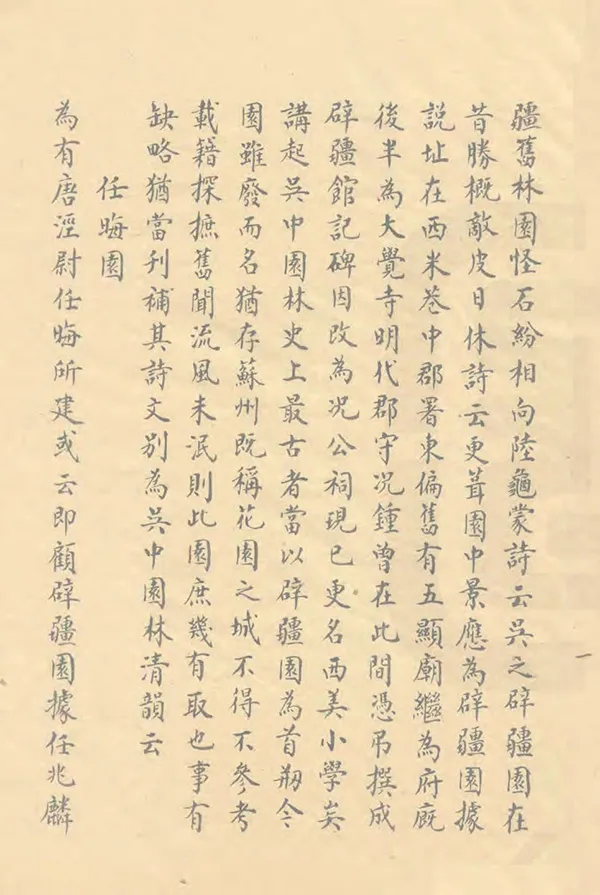 疆舊林園怪石紛相向陸龜蒙詩云吳之辟疆園在
昔勝概敵皮日休詩云更葺園中景應為辟疆園據
説址在西米巷中郡署東偏舊有五顯廟繼為府廐
後半為大覺寺明代郡守况鍾曾在此間憑吊撰成
辟疆館記碑因改為况公祠現已更名西美小學矣
講起吳中園林史上最古者當以辟疆園為首刱今
園雖廢而名猶存蘇州既稱花園之城不得不參考
載籍探摭舊聞流風未泯則此園庶幾有取也事有
缺略猶當刊補其詩文别為吳中園林清韻云
任晦園
為有唐涇尉任晦所建或云即顧辟疆園據任兆麟